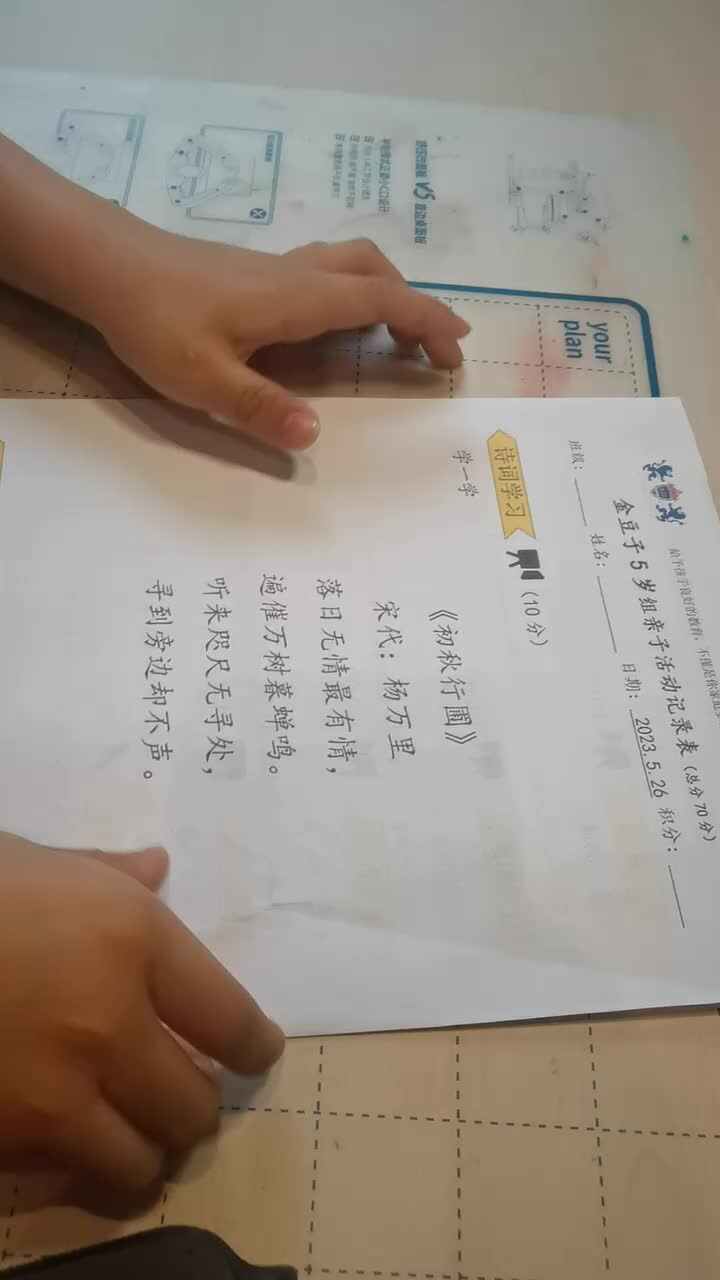 金豆子5岁组亲子活动记录表(总分70分)
班级: 姓名: 日期: 2023.5.26 积分:
诗词学习 (10分)
学一学
《初秋行圃》
宋代:杨万里
落日无情最有情,
遍催万树暮蝉鸣。
听来咫尺无寻处,
寻到旁边却不声。
your
plan